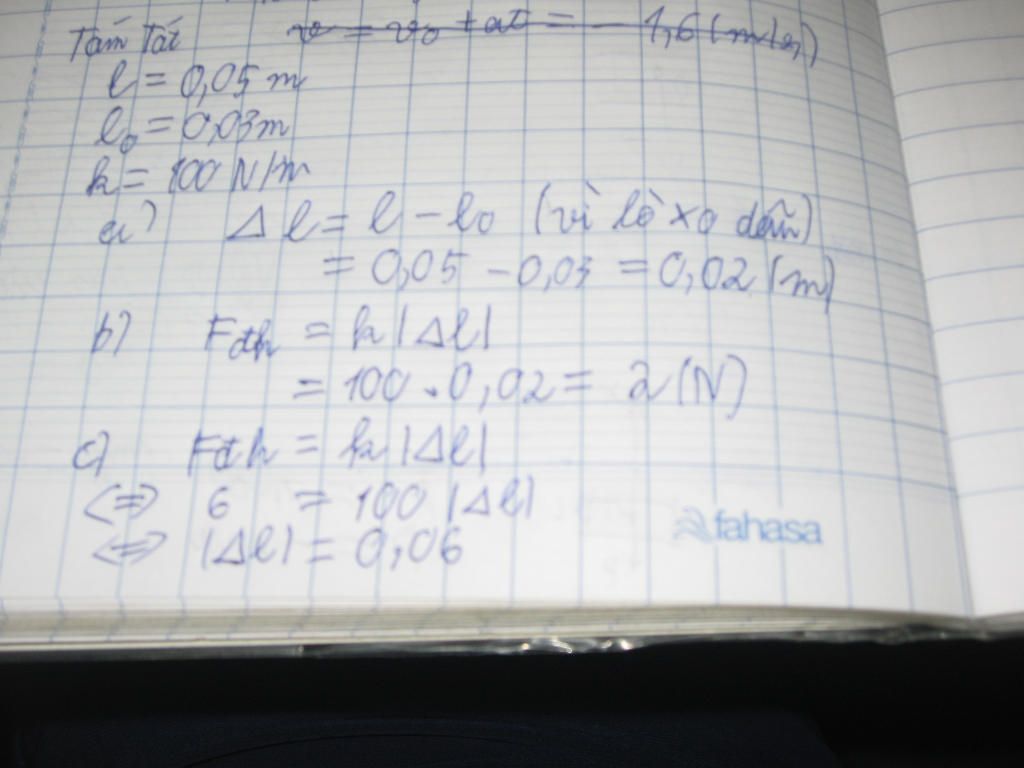 Tóm Tắt v = v₀ + at = - 1,6 (m/s)
l = 0,05 m
l₀ = 0,03m
k = 100 N/m
a) Δl = l - l₀ (vì lò xo dãn)
= 0,05 - 0,03 = 0,02 (m)
b) Fđh = k |Δl|
= 100 . 0,02 = 2 (N)
c) Fđh = k |Δl|
<=> 6 = 100 |Δl|
<=> |Δl| = 0,06
fahasa